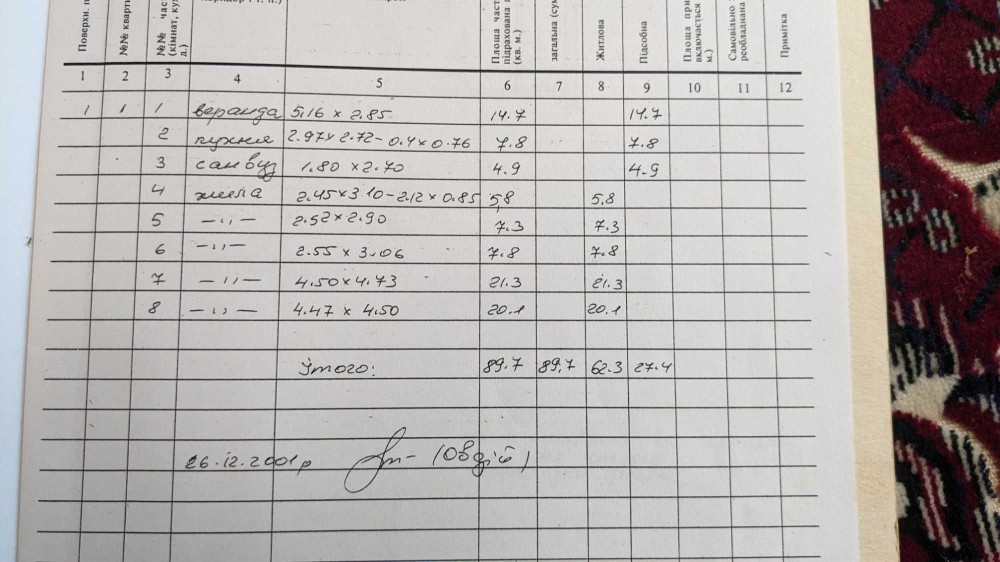 Поверхи. п
№№ кварти
№№ час
(кімнат, кух
д.)
Площа част
підрахована
(кв. м.)
загальна (су
Житлова
Підсобна
Площа при
включається
м.)
Самовільно
реобладнана
Примітка
1 2 3 4 5 6 7 8 9 10 11 12
1 1 1 веранда 5.16 х 2.85 14.7 14.7
2 кухня 2.97х2.72-0.4х0.76 7.8 7.8
3 санвуз 1.80 х2.70 4.9 4.9
4 жила 2.45х3.10-2.12х0.85 5,8 5,8
5 —,,— 2.52х2.90 7.3 7.3
6 —,,— 2.55 х 3.06 7.8 7.8
7 —,,— 4.50х4.73 21.3 21.3
8 —,,— 4.47 х 4.50 20.1 20.1
Итого: 89.7 89,7 62.3 27.4
26.12.2001р (Овдій)